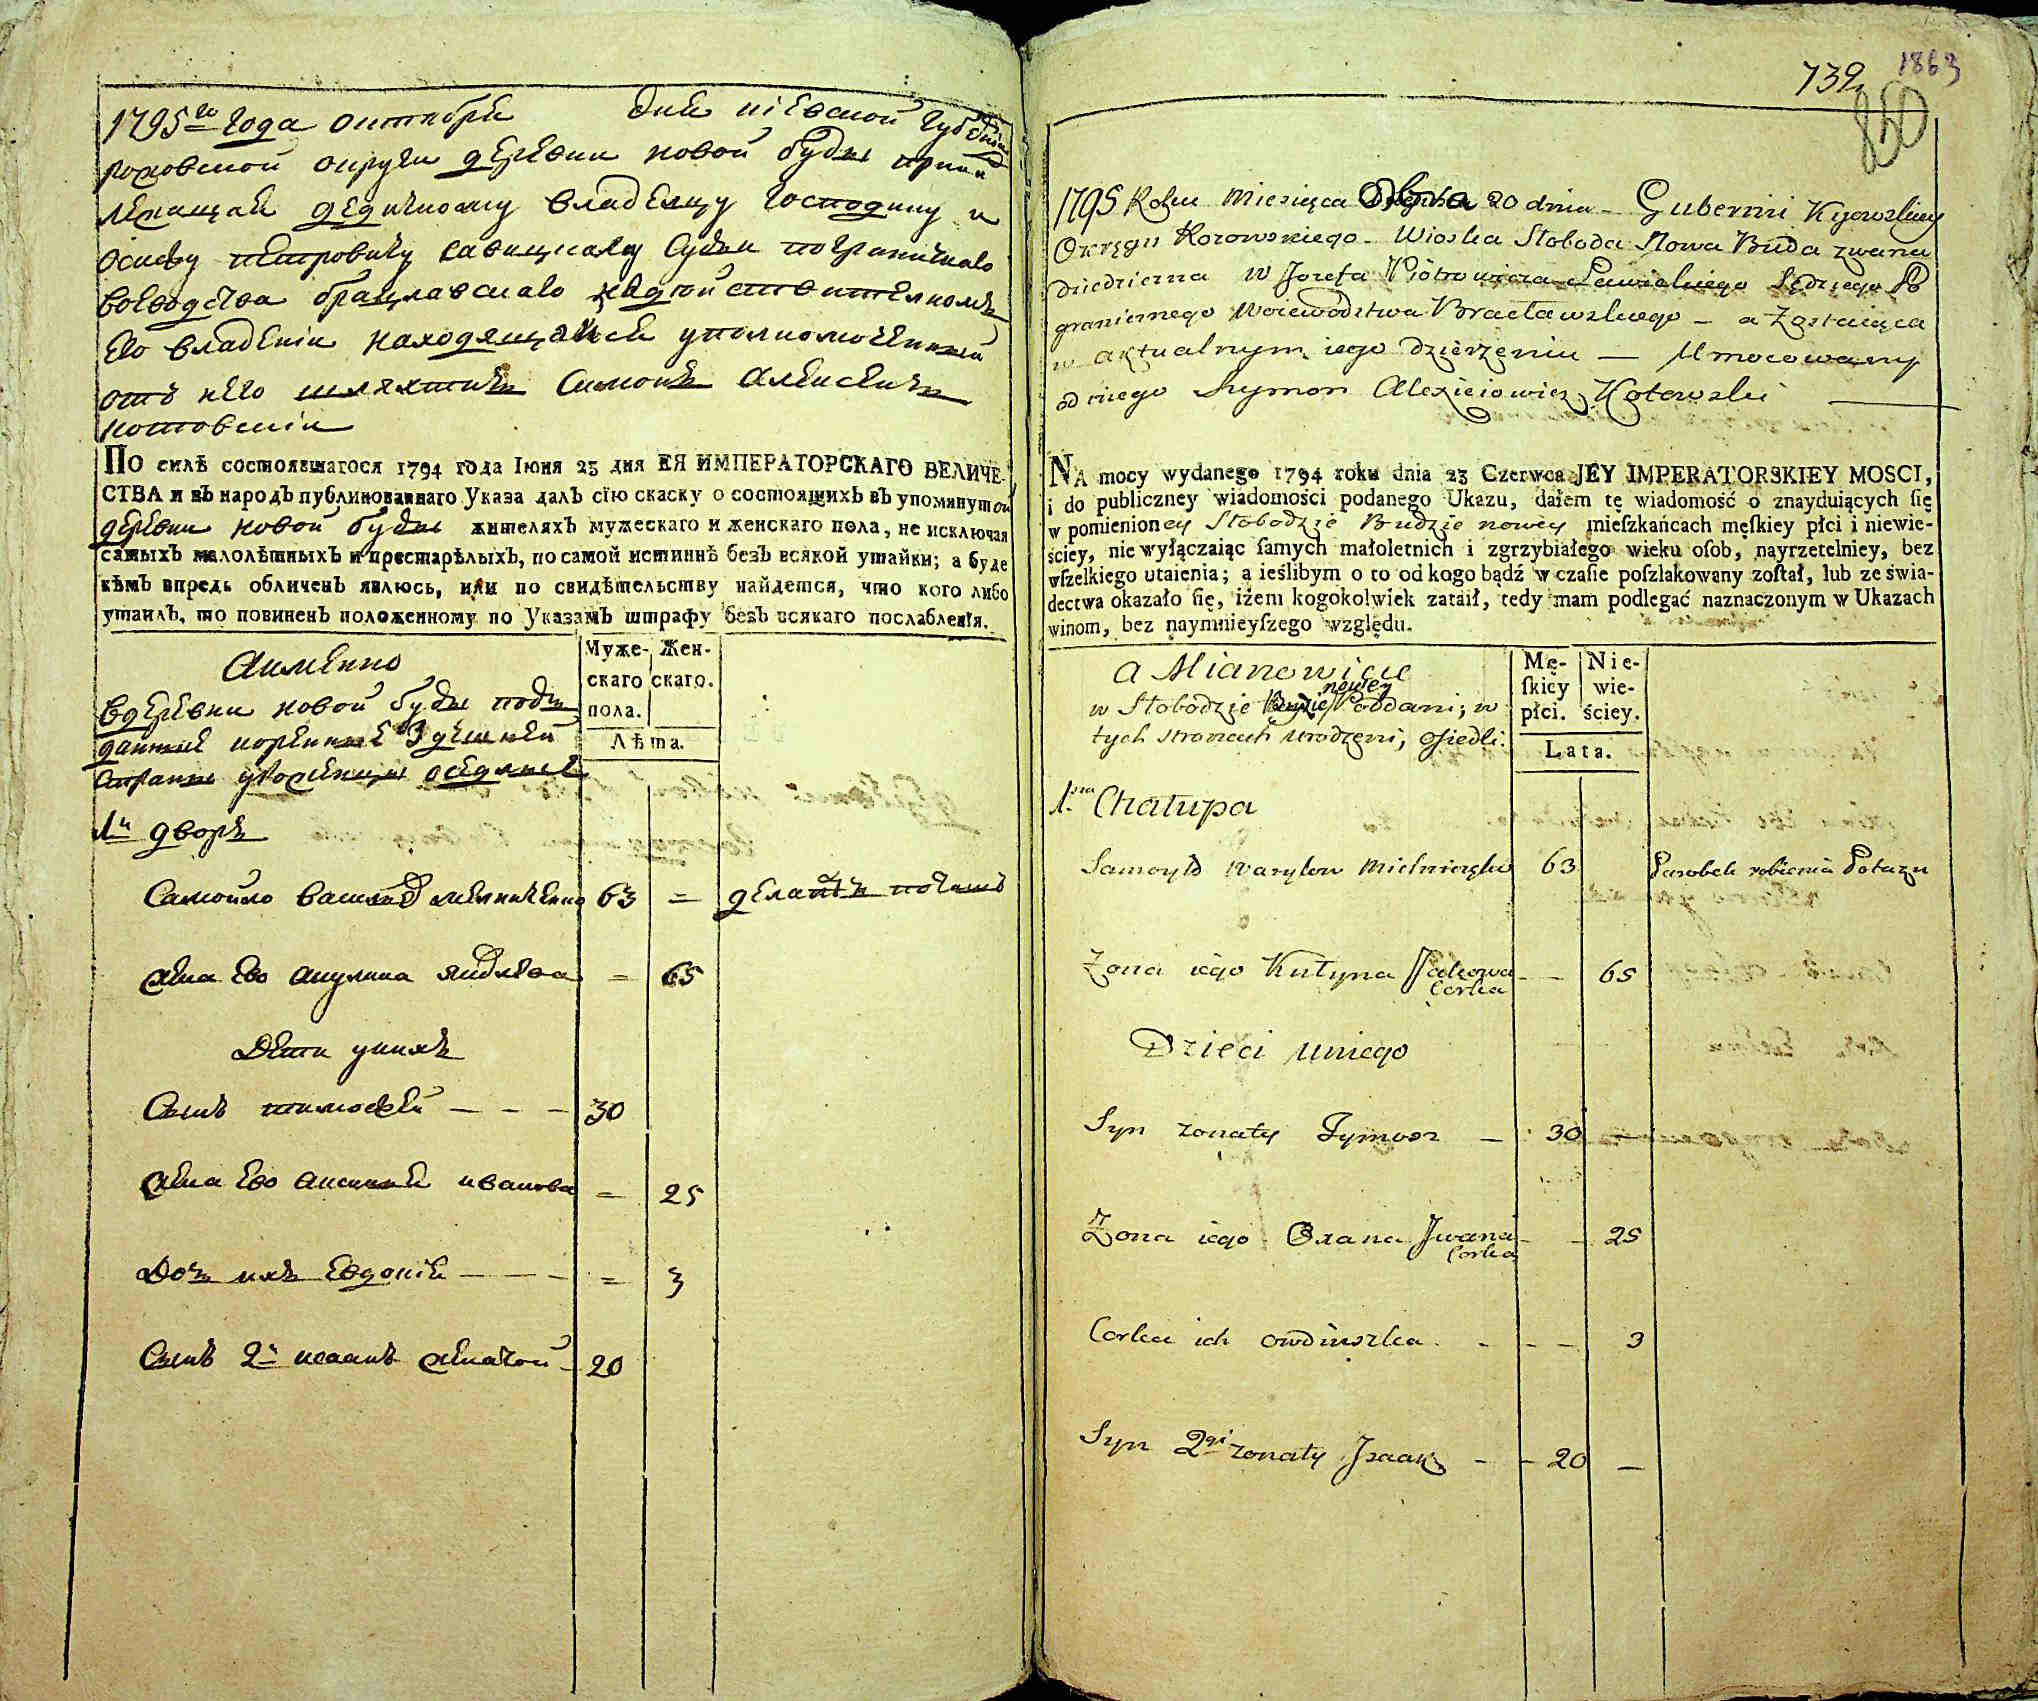 1795го года октября дня киевской губернии
роховской округи деревни новой буды принад
лежащая дедичному владельцу господину
осипу петровичу савицкому судьи пограничнаго
воеводства брацлавскаго
ево владении находящаяся уполномоченный
отъ него шляхтичъ Симонъ алексеевичъ
котовский
По силѣ состоявшагося 1794 года Іюня 23 дня ЕЯ ИМПЕРАТОРСКАГО ВЕЛИЧЕ-
СТВА и въ народъ публикованнаго Указа далъ сїю скаску о состоящихъ въ упомянутой
деревни новой буды жителяхъ мужескаго и женскаго пола, не исключая
самыхъ малолѣтныхъ и престарѣлыхъ, по самой истиннѣ безъ всякой утайки; а буде
кѣмъ впредь обличенъ явлюсь, или по свидѣтельству найдется, что кого либо
утаилъ, то повиненъ положенному по Указамъ штрафу безъ всякаго послабленія.
Аименно
вдеревни новой буды подъ
данные коренные Здешней
страны уроженцы оседлые
Муже-
скаго
пола.
Жен-
скаго.
Лѣта.
1й дворъ
Самойло василевъ мелниченко 63 = делаетъ поташъ
жена ево акулина яковлева = 65
Дети унихъ
Сынъ тимофей - - - 30
жена ево аксиния иванова = 25
Дочь ихъ евдокия - - - = 3
Сынъ 2й исаакъ женатой - 20
739 1863
850
1795 Roku Miesięca 20 dnia - Gubernii Kijowskiey
Okręgu Korowskiego - Wioska Słoboda Nowa Buda zwana
dziedziczna W Jozefa Piotrowicza Sawickiego Sędziego Po
granicznego Woiewodztwa Bracławskiego - a Zostaiąca
w aktualnym iego dzierżeniu - Umocowany
od niego Szymon Alexieiowicz Kotowski
NA mocy wydanego 1794 roku dnia 23 Czerwca JEY IMPERATORSKIEY MOSCI,
i do publiczney wiadomości podanego Ukazu, daiem tę wiadomość o znayduiących ſię
w pomienioney Słobodzie Budzie nowey mieſzkańcach męſkiey płci i niewie-
ściey, nie wyłączaiąc ſamych małoletnich i zgrzybiałego wieku oſob, nayrzetelniey, bez
wſzelkiego utaienia; a ieślibym o to od kogo bądź w czaſie poſzlakowany zoſtał, lub ze świa-
dectwa okazało ſię, iżem kogokolwiek zataił, tedy mam podlegać naznaczonym w Ukazach
winom, bez naymnieyſzego względu.
a Mianowicie
w Słobodzie Budzie nowey Poddani, w
tych stronach urodzeni, osiedli.
Mę-
ſkiey
płci.
Nie-
wie-
ściey.
Lata.
1sza Chałupa
Samoyło Wasylow Mielniczęko 63 Parobek robienia Potazu
Zona iego Kulyna Jakowa Corka - - 65
Dzieci uniego
Syn zonaty Tymosz - 30 -
Zona iego Oxana Jwana Corka - - 25
Corka ich owdiuszka - - - 3
Syn 2gi zonaty Jsaak - - 20 -